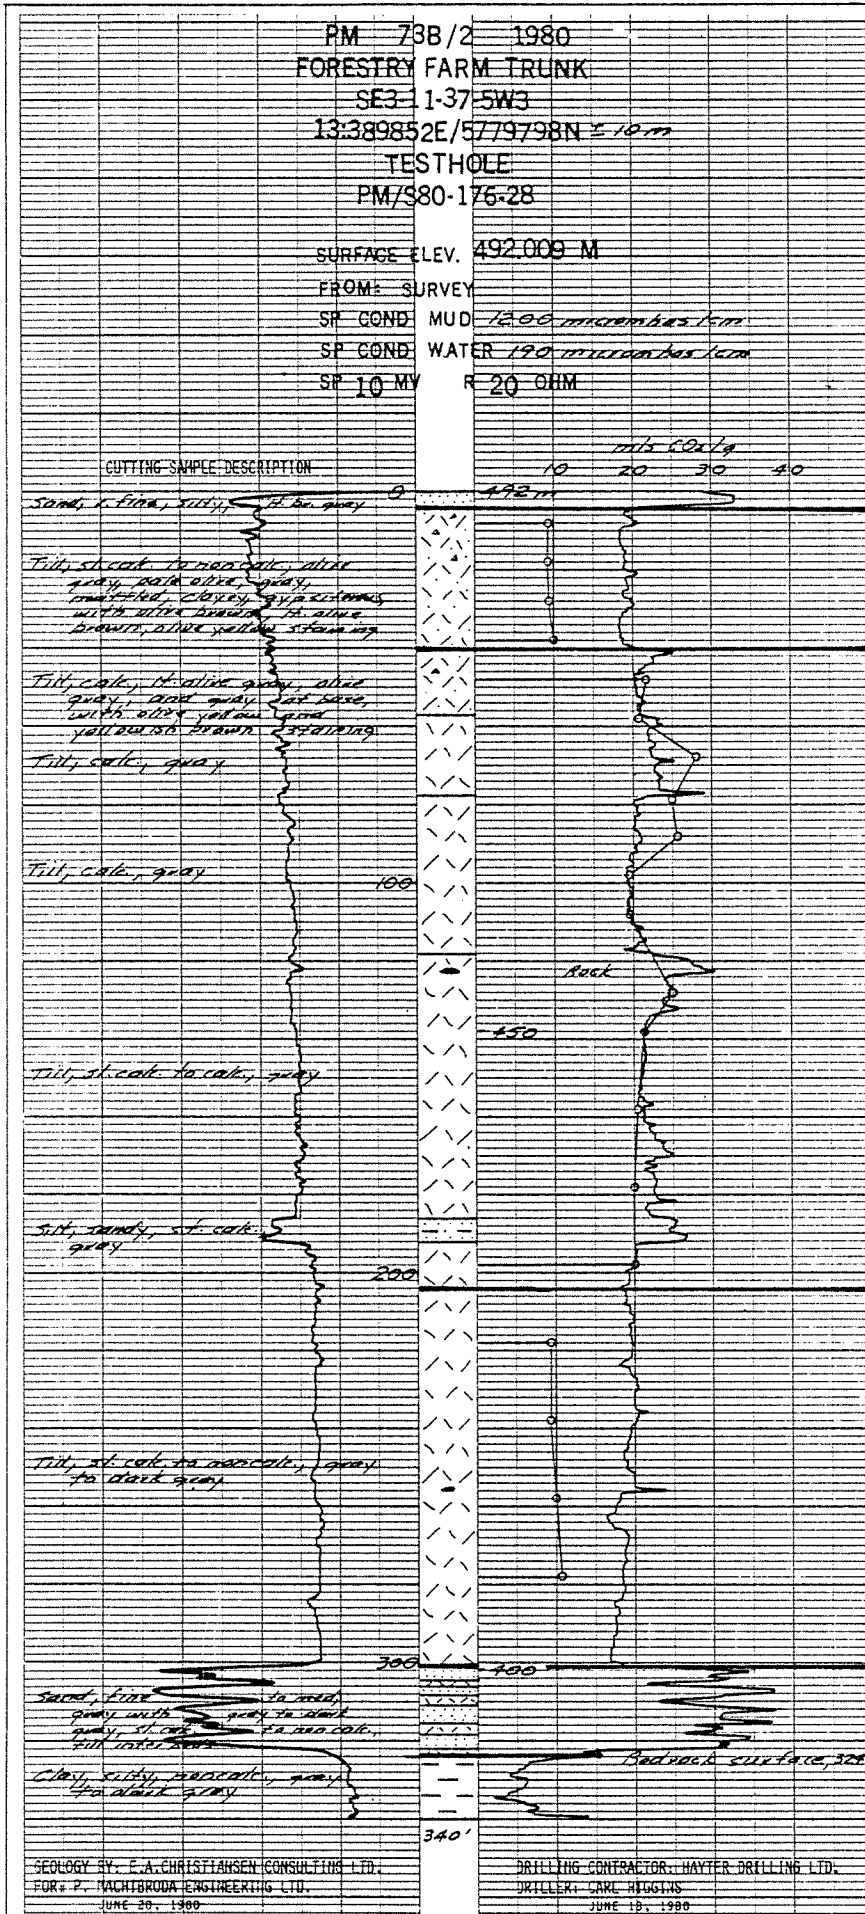 PM 73B/2 1980
FORESTRY FARM TRUNK
SE3-11-37-5W3
13:389852E/5779798N ± 10 m
TESTHOLE
PM/S80-176-28
SURFACE ELEV. 492.009 M
FROM: SURVEY
SP COND MUD 1200 micromhos/cm
SP COND WATER 190 micromhos/cm
SP 10 MV R 20 OHM
mls CO2/g
CUTTING SAMPLE DESCRIPTION 10 20 30 40
0 492 m
Sand, v. fine, silty, lt. br. gray
Till, sl. calc. to noncalc., olive
gray, pale olive, gray,
mottled, clayey, gypsiferous
with olive brown, lt. olive
brown, olive yellow staining
Till, calc., lt. olive gray, olive
gray, and gray at base,
with olive yellow and
yellowish brown staining
Till, calc., gray
Till, calc., gray
100
Rock
450
Till, sl. calc. to calc., gray
Silt, sandy, sl. calc.,
gray
200
Till, sl. calc. to noncalc., gray
to dark gray
300 400
Sand, fine to med,
gray with gray to dark
gray, sl. calc. to noncalc.,
till interbeds
Bedrock surface, 324
Clay, silty, noncalc., gray
to dark gray
340'
GEOLOGY BY: E.A.CHRISTIANSEN CONSULTING LTD.
FOR: P. MACHIBRODA ENGINEERING LTD.
JUNE 20, 1980
DRILLING CONTRACTOR: HAYTER DRILLING LTD.
DRILLER: CARL HIGGINS
JUNE 18, 1980